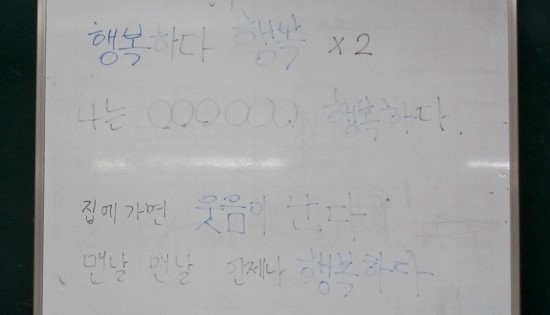 행복하다 행복 x2
나는 ○○○○○○ 행복하다.
집에 가면 웃음이 난다
맨날 맨날 언제나 행복하다